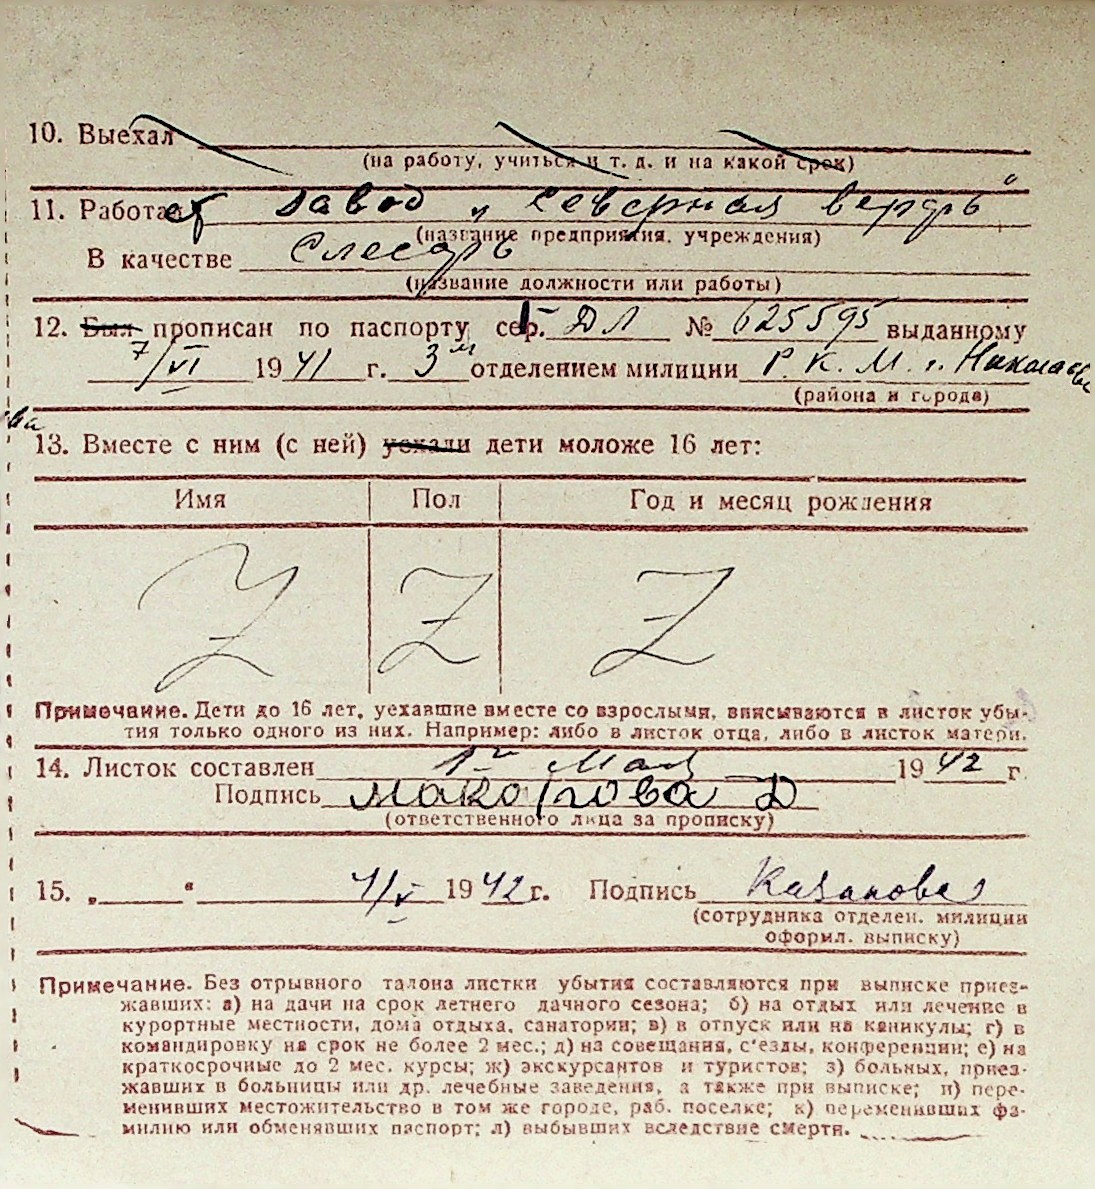 10. Выехал
(на работу, учиться и т. д. и на какой срок)
11. Работает завод „Северная верфь“
(название предприятия, учреждения)
В качестве Слесарь
(название должности или работы)
12. Был прописан по паспорту сер. ДЛ № 625595 выданному
7/VI 1941 г. 3м отделением милиции Р. К. М. г. Николаева
(района и города)
13. Вместе с ним (с ней) уехали дети моложе 16 лет:
Имя Пол Год и месяц рождения
Z Z Z
Примечание. Дети до 16 лет, уехавшие вместе со взрослыми, вписываются в листок убы-
тия только одного из них. Например: либо в листок отца, либо в листок матери.
14. Листок составлен 1го Мая 1942 г.
Подпись Д
(ответственного лица за прописку)
15. „ “ 1942 г. Подпись Казакова
(сотрудника отделен. милиции
оформл. выписку)
Примечание. Без отрывного талона листки убытия составляются при выписке приез-
жавших: а) на дачи на срок летнего дачного сезона; б) на отдых или лечение в
курортные местности, дома отдыха, санатории; в) в отпуск или на каникулы; г) в
командировку на срок не более 2 мес.; д) на совещания, с'езды, конференции; е) на
краткосрочные до 2 мес. курсы; ж) экскурсантов и туристов; з) больных, приез-
жавших в больницы или др. лечебные заведения, а также при выписке; и) пере-
менивших местожительство в том же городе, раб. поселке; к) переменивших фа-
милию или обменявших паспорт; л) выбывших вследствие смерти.